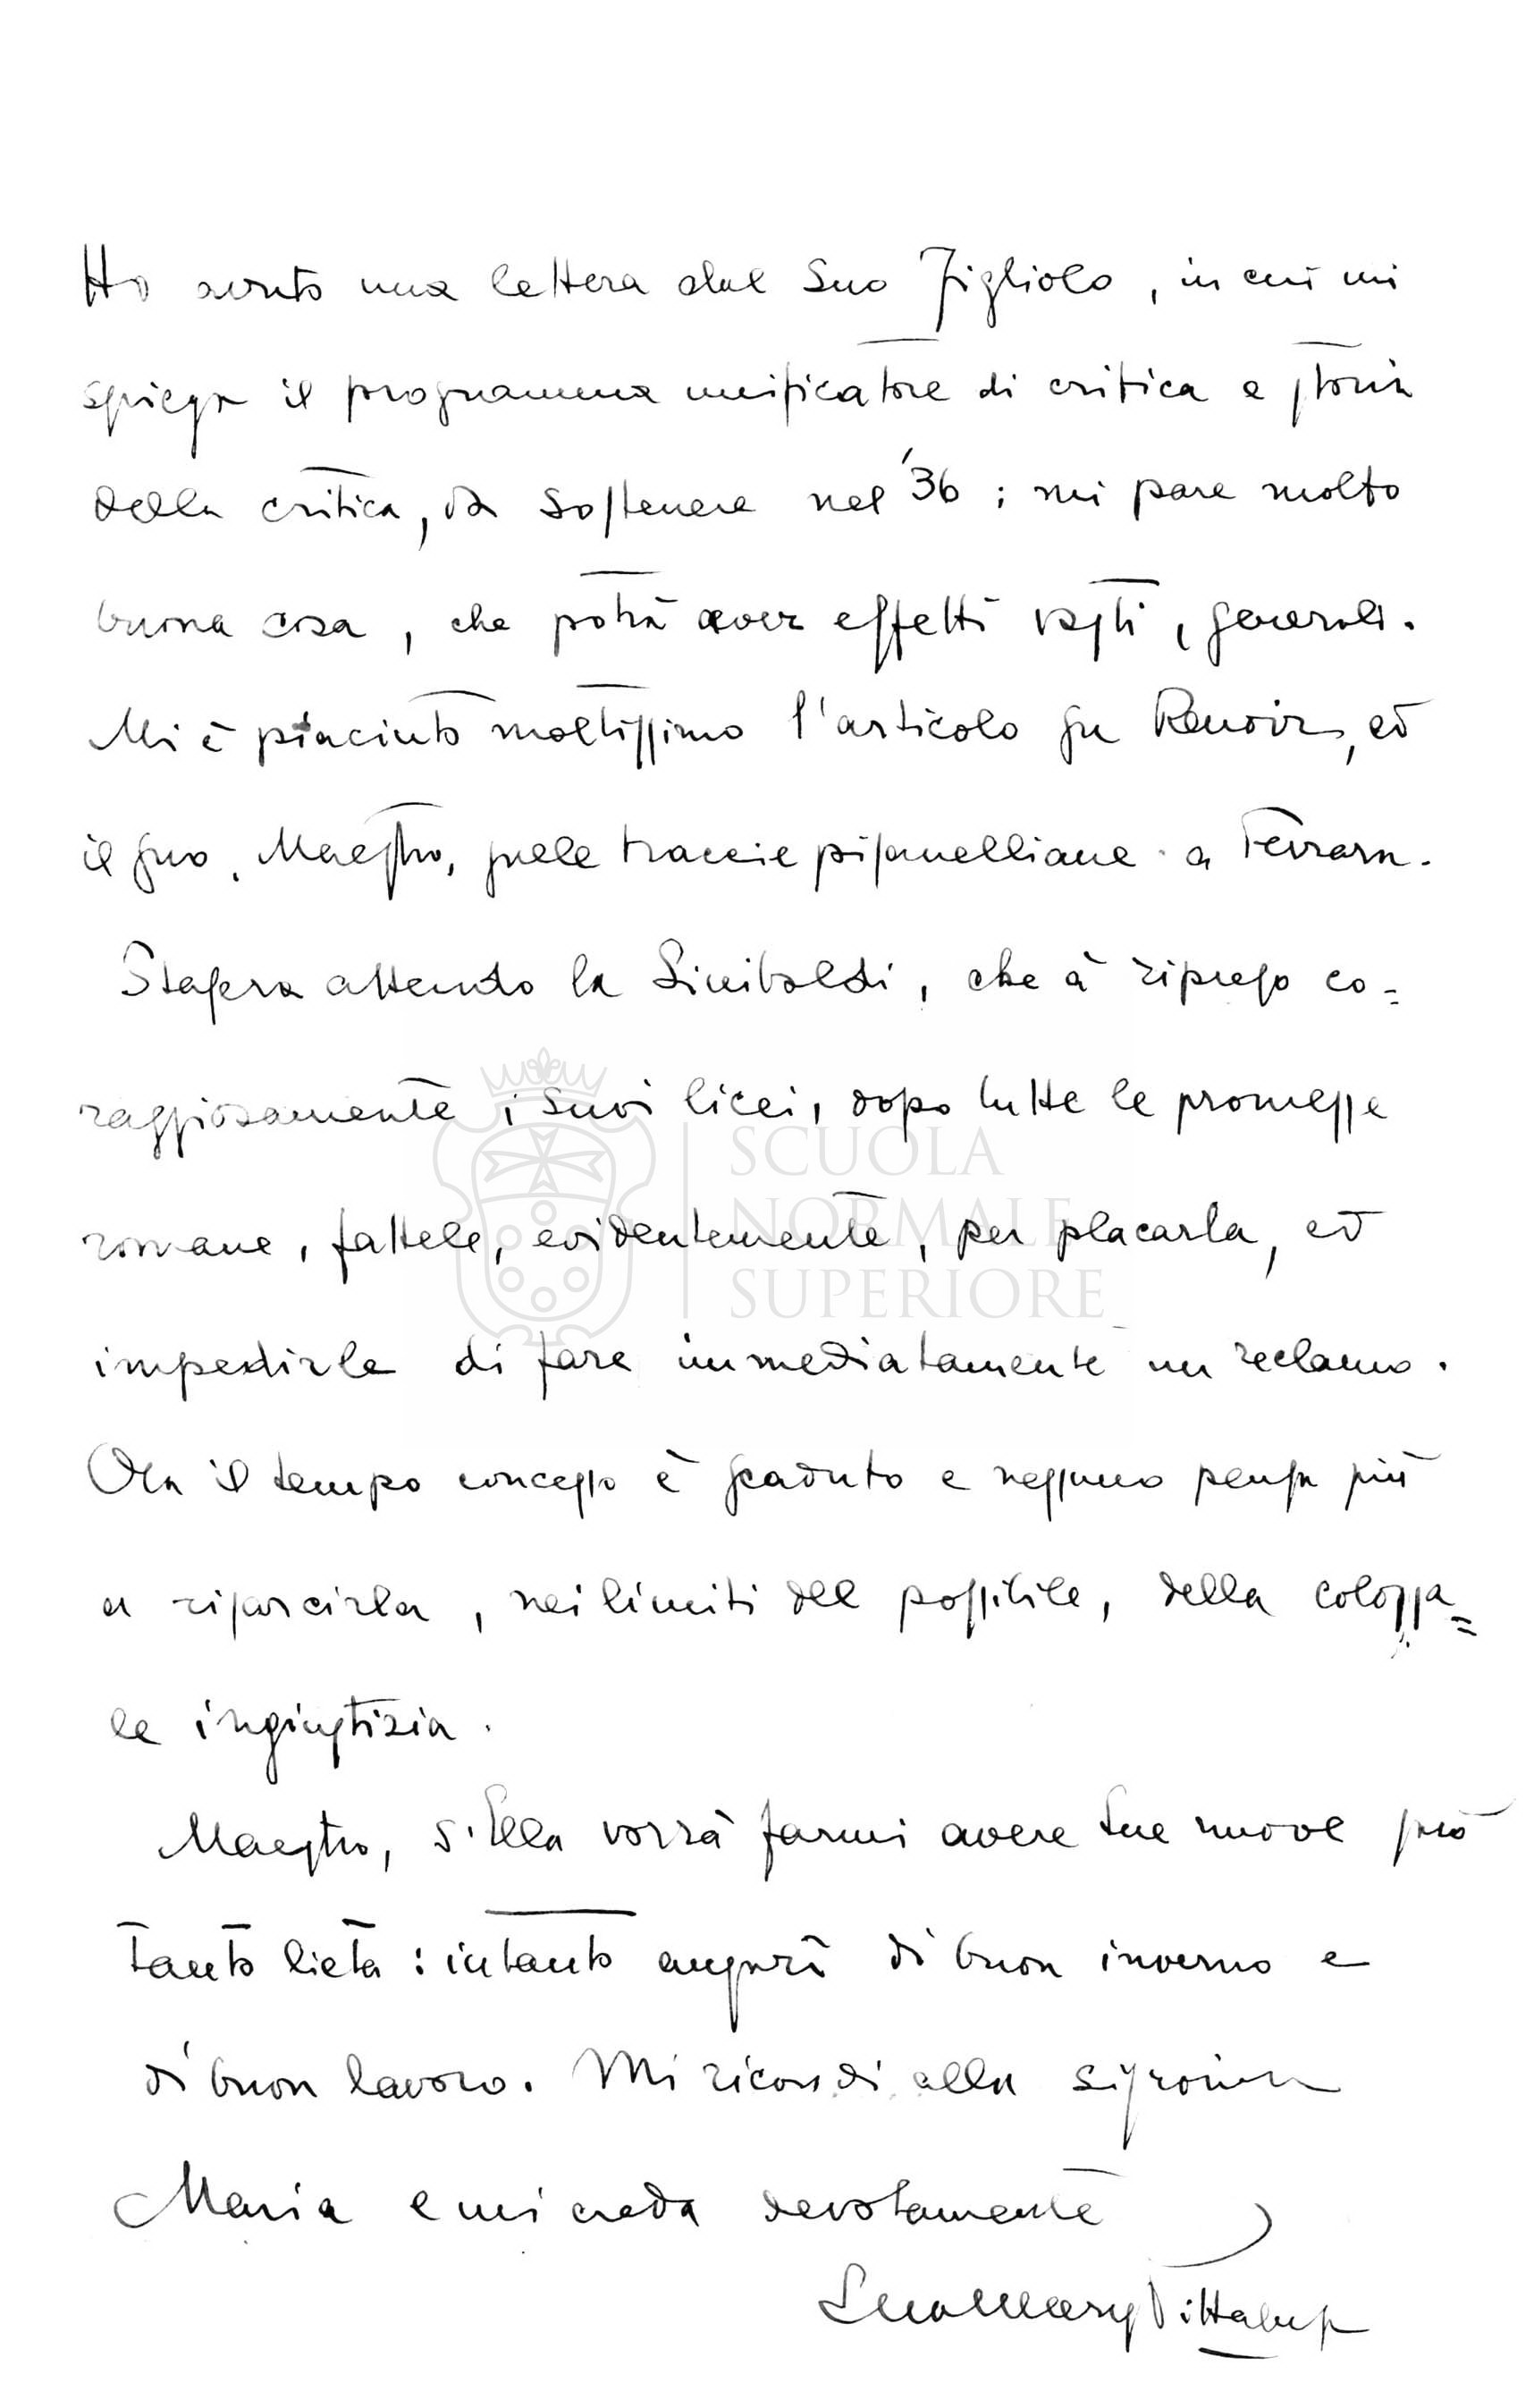 Ho avuto una lettera dal Suo Figliolo, in cui mi
spiega il programma unificatore di critica e storia
della critica, da sostenere nel '36; mi pare molto
buona cosa, che potrà aver effetti vasti, generali.
Mi è piaciuto moltissimo l'articolo su Renoir, ed
il suo, Maestro, sulle traccie pisanelliane a Ferrara.
Stasera attendo la Sinibaldi, che à ripreso co=
raggiosamente i suoi licei, dopo tutte le promesse
romane, fattele, evidentemente, per placarla, ed
impedirle di fare immediatamente un reclamo.
Ora il tempo concesso è scaduto e nessuno pensa più
a risarcirla, nei limiti del possibile, della colossa=
le ingiustizia.
Maestro, s'Ella vorrà farmi avere Sue nuove sarò
tanto lieta: intanto auguri di buon inverno e
di buon lavoro. Mi ricordi alla signorina
Maria e mi creda devotamente
Sua Mary Pittaluga
SCUOLA
NORMALE
SUPERIORE